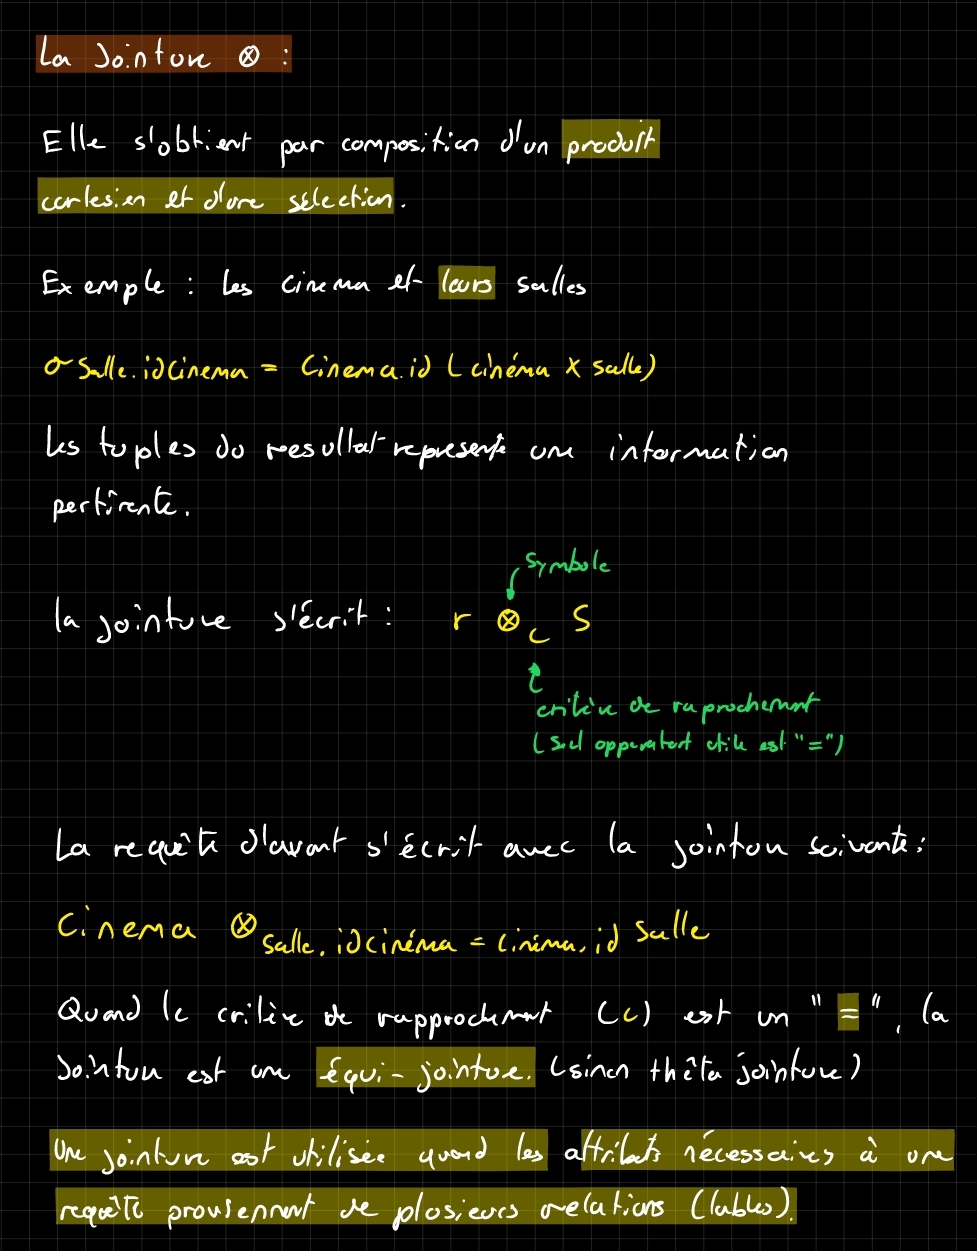 La Jointure ⊗ :
Elle s'obtient par composition d'un produit
cartesien et d'une sélection.
Exemple : Les cinema et leurs salles
σ Salle.idCinema = Cinema.id (cinéma x salle)
Les tuples du resultat represente une information
pertinente.
symbole
la jointure s'écrit : r ⊗c S
critère de raprochement
(seul opperateur utile est "=")
La requête d'avant s'écrit avec la jointure suivante :
Cinema ⊗ Salle.idcinéma = cinéma.id Salle
Quand le critère de rapprochement (c) est un "=", la
Jointure est une équi-jointure. (sinon thêta jointure)
Une jointure est utilisée quand les attributs nécessaires à une
requête proviennent de plusieurs relations (tables).